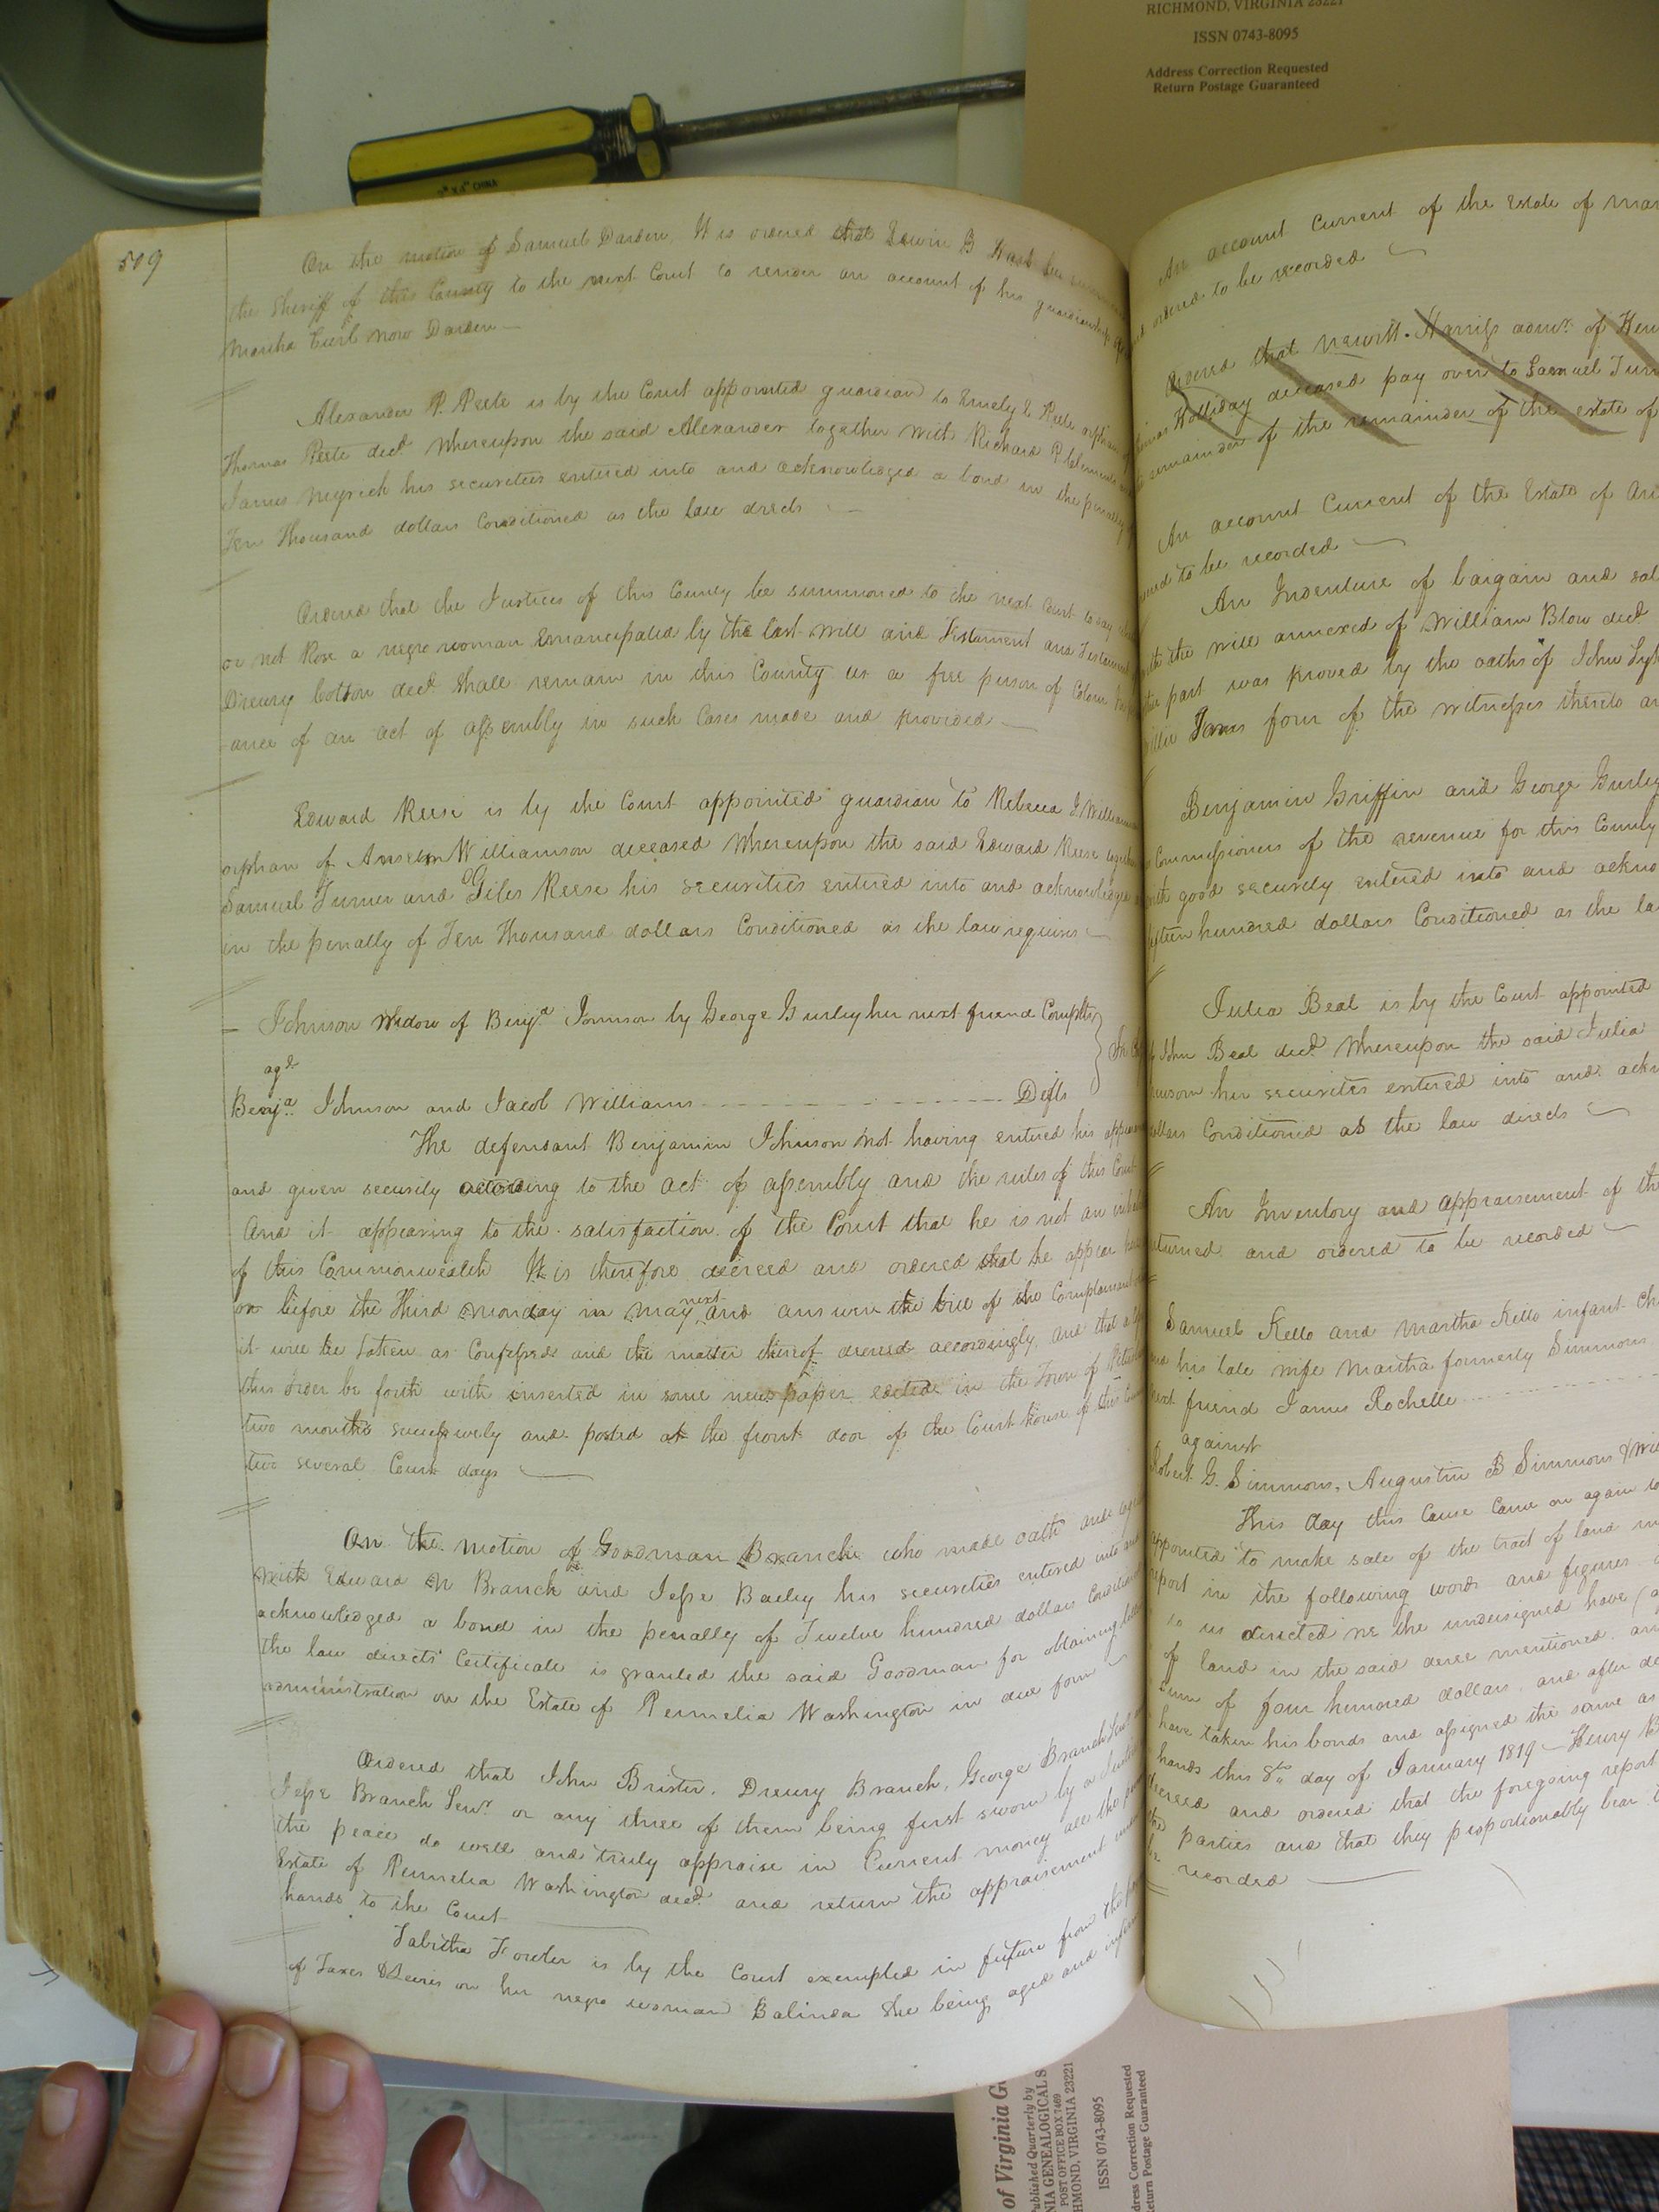 RICHMOND, VIRGINIA 23221
ISSN 0743-8095
Address Correction Requested
Return Postage Guaranteed
CHINA
509
On the motion of Samuel Darden, It is ordered that Edwin B
the Sheriff of this County to the next Court to render an account of his guardianship of
Martha now Darden
Alexander P. Peete is by the Court appointed guardian to Emely E Peete orphan of
Thomas Peete decd. Whereupon the said Alexander together with Richard P Clements
James Megreeh his securities entered into and acknowledged a bond in the penalty of
Ten Thousand dollars Conditioned as the law directs
Ordered that the Justices of this County be summoned to the next Court to say
or not Rose a negro woman Emancipated by the last will and Testament and Testament
Drewry Cotton decd. Shall remain in this County as a free person of Colour
ance of an act of assembly in such Cases made and provided
Edward Reese is by the Court appointed guardian to Rebecca J. Williamson
orphan of Anselm Williamson deceased Whereupon the said Edward Reese
Samuel Turner and Giles Reese his securities entered into and acknowledged
in the penalty of Ten Thousand dollars Conditioned as the law requires
Johnson Widow of Benja. Johnson by George Gurley her next friend Complt
agt
Benja. Johnson and Jacob Williams Defts
The defendant Benjamin Johnson not having entered his
and given security according to the act of assembly and the rules of this Court
And it appearing to the satisfaction of the Court that he is not an
of this Commonwealth It is therefore decreed and ordered that he appear here
on before the third Monday in May next and answer the bill of the Complainant
it will be taken as Confessed and the matter thereof decreed accordingly, and that a
this order be forth with inserted in some news paper edited in the Town of
two months successively and posted at the front door of the Court house of this
two several Court days
On the motion of Goodman Branch who made oath and
with Edward N Branch and Jesse Bailey his securities entered into and
acknowledged a bond in the penalty of Twelve hundred dollars
the law directs Certificate is granted the said Goodman for obtaining
administration on the Estate of Permelia Washington in due form
Ordered that John Brister, Drewry Branch, George Branch
Jesse Branch Senr. or any three of them being first sworn by a
the peace do well and truly appraise in Current money all the
Estate of Permelia Washington decd. and return the appraisement
hands to the Court
Tabitha Fowler is by the Court exempted in future from the
of Taxes & Levies on her negro woman Balinda She being aged and
An account Current of the Estate of
ordered to be recorded
Ordered that Newitt Harris admr. of
Holliday deceased pay over to Samuel
remainder of the remainder of the estate of
An account Current of the Estate of
to be recorded
An Indenture of bargain and
the will annexed of William Blow decd
part was proved by the oaths of John
four of the witnesses thereto
Benjamin Griffin and George Gurley
Commissioners of the revenue for this County
good security entered into and
fifteen hundred dollars Conditioned as the
Julia Beal is by the Court appointed
John Beal decd Whereupon the said Julia
her securites entered into and
Conditioned as the law directs
An Inventory and appraisement of
and ordered to be recorded
Samuel Kello and Martha Kello infant
his late wife Martha formerly Simmons
friend James Rochelle
against
Robert G. Simmons, Augustin B Simmons &
This day this Cause Came on again
appointed to make sale of the tract of land
report in the following words and figures
to us directed we the undersigned have
of land in the said decree mentioned,
sum of four hundred dollars, and after
have taken his bonds and assigned the same as
hands this 8th day of January 1819 Henry
decreed and ordered that the foregoing report
the parties and that they proportionably bear
be recorded
of Virginia
Published Quarterly by
GENEALOGICAL
POST OFFICE BOX 7469
RICHMOND, VIRGINIA 23221
ISSN 0743-8095
Address Correction Requested
Return Postage Guaranteed